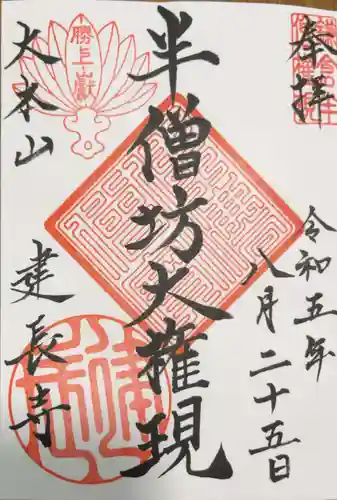 奉拝
令和五年
八月二十五日
半僧坊大権現
勝上嶽
大本山
建長寺